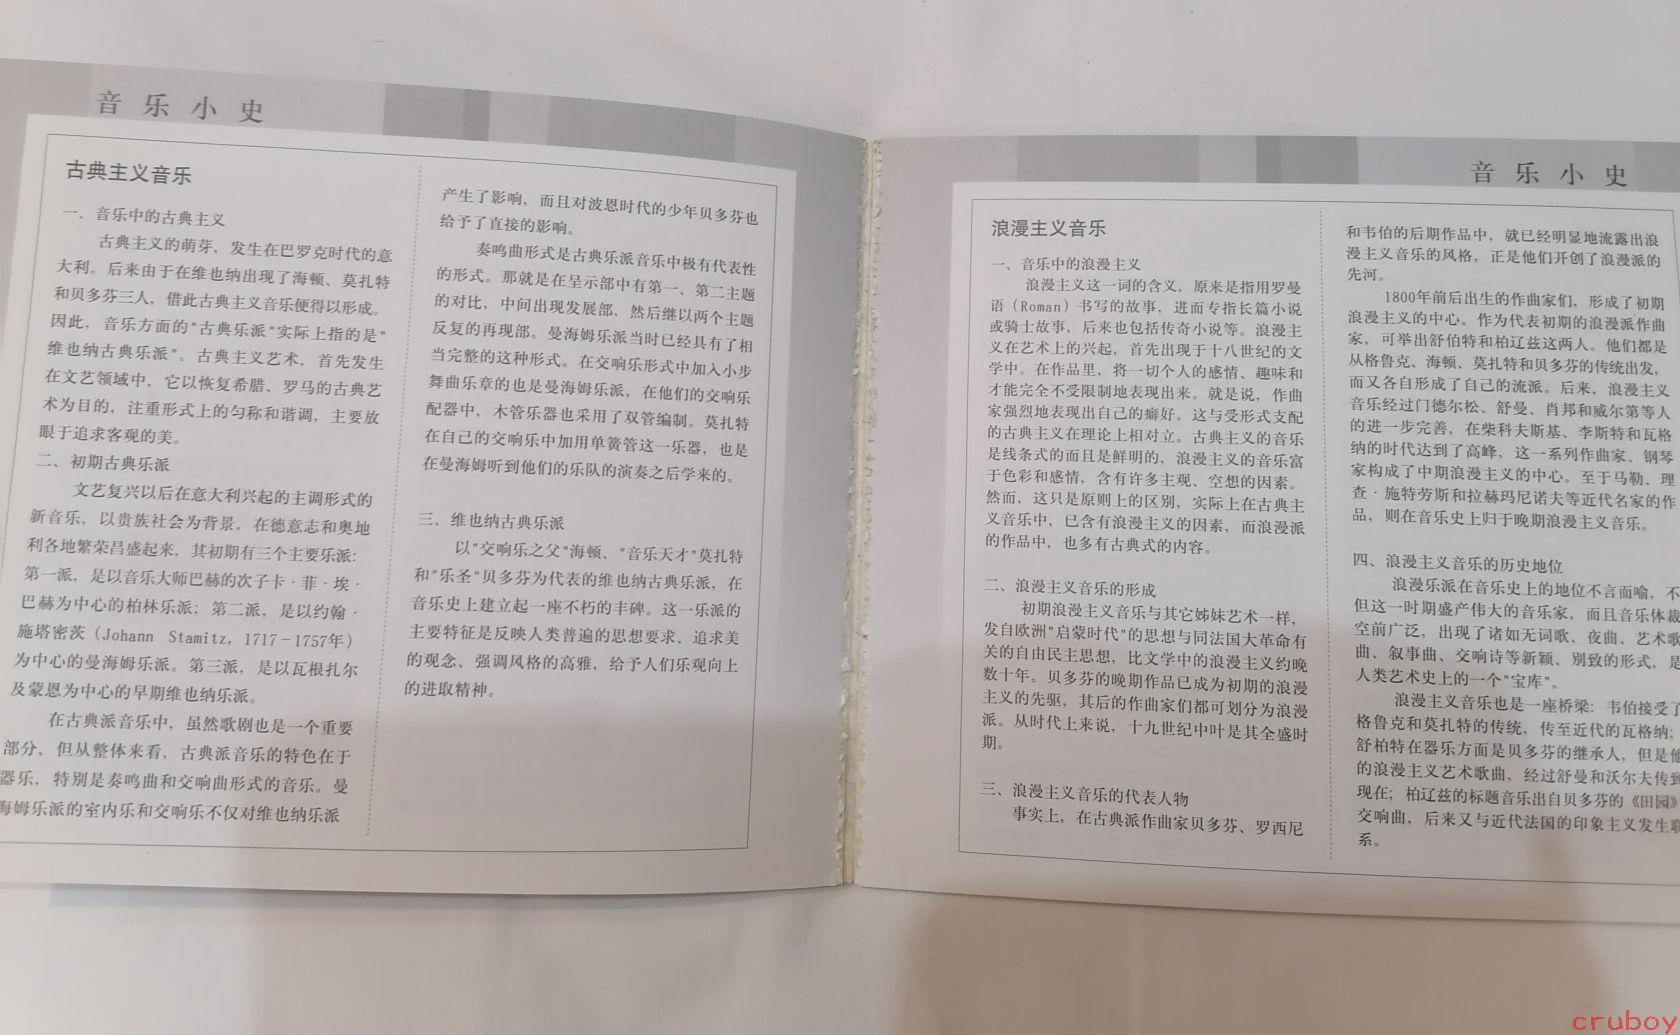 音乐小史
古典主义音乐
一、音乐中的古典主义
古典主义的萌芽，发生在巴罗克时代的意
大利。后来由于在维也纳出现了海顿、莫扎特
和贝多芬三人，借此古典主义音乐便得以形成。
因此，音乐方面的"古典乐派"实际上指的是"
维也纳古典乐派"。古典主义艺术，首先发生
在文艺领域中，它以恢复希腊、罗马的古典艺
术为目的，注重形式上的匀称和谐调，主要放
眼于追求客观的美。
二、初期古典乐派
文艺复兴以后在意大利兴起的主调形式的
新音乐，以贵族社会为背景，在德意志和奥地
利各地繁荣昌盛起来，其初期有三个主要乐派：
第一派，是以音乐大师巴赫的次子卡·菲·埃·
巴赫为中心的柏林乐派；第二派，是以约翰·
施塔密茨（Johann Stamitz，1717－1757年）
为中心的曼海姆乐派。第三派，是以瓦根扎尔
及蒙恩为中心的早期维也纳乐派。
在古典派音乐中，虽然歌剧也是一个重要
部分，但从整体来看，古典派音乐的特色在于
器乐，特别是奏鸣曲和交响曲形式的音乐。曼
海姆乐派的室内乐和交响乐不仅对维也纳乐派
产生了影响，而且对波恩时代的少年贝多芬也
给予了直接的影响。
奏鸣曲形式是古典乐派音乐中极有代表性
的形式。那就是在呈示部中有第一、第二主题
的对比，中间出现发展部，然后继以两个主题
反复的再现部。曼海姆乐派当时已经具有了相
当完整的这种形式。在交响乐形式中加入小步
舞曲乐章的也是曼海姆乐派，在他们的交响乐
配器中，木管乐器也采用了双管编制。莫扎特
在自己的交响乐中加用单簧管这一乐器，也是
在曼海姆听到他们的乐队的演奏之后学来的。
三、维也纳古典乐派
以"交响乐之父"海顿、"音乐天才"莫扎特
和"乐圣"贝多芬为代表的维也纳古典乐派，在
音乐史上建立起一座不朽的丰碑。这一乐派的
主要特征是反映人类普遍的思想要求、追求美
的观念、强调风格的高雅，给予人们乐观向上
的进取精神。
音乐小史
浪漫主义音乐
一、音乐中的浪漫主义
浪漫主义这一词的含义，原来是指用罗曼
语（Roman）书写的故事，进而专指长篇小说
或骑士故事，后来也包括传奇小说等。浪漫主
义在艺术上的兴起，首先出现于十八世纪的文
学中。在作品里，将一切个人的感情、趣味和
才能完全不受限制地表现出来。就是说，作曲
家强烈地表现出自己的癖好。这与受形式支配
的古典主义在理论上相对立。古典主义的音乐
是线条式的而且是鲜明的，浪漫主义的音乐富
于色彩和感情，含有许多主观、空想的因素。
然而，这只是原则上的区别，实际上在古典主
义音乐中，已含有浪漫主义的因素，而浪漫派
的作品中，也多有古典式的内容。
二、浪漫主义音乐的形成
初期浪漫主义音乐与其它姊妹艺术一样，
发自欧洲"启蒙时代"的思想与同法国大革命有
关的自由民主思想，比文学中的浪漫主义约晚
数十年。贝多芬的晚期作品已成为初期的浪漫
主义的先驱，其后的作曲家们都可划分为浪漫
派。从时代上来说，十九世纪中叶是其全盛时
期。
三、浪漫主义音乐的代表人物
事实上，在古典派作曲家贝多芬、罗西尼
和韦伯的后期作品中，就已经明显地流露出浪
漫主义音乐的风格，正是他们开创了浪漫派的
先河。
1800年前后出生的作曲家们，形成了初期
浪漫主义的中心。作为代表初期的浪漫派作曲
家，可举出舒伯特和柏辽兹这两人。他们都是
从格鲁克、海顿、莫扎特和贝多芬的传统出发，
而又各自形成了自己的流派。后来，浪漫主义
音乐经过门德尔松、舒曼、肖邦和威尔第等人
的进一步完善，在柴科夫斯基、李斯特和瓦格
纳的时代达到了高峰，这一系列作曲家、钢琴
家构成了中期浪漫主义的中心。至于马勒、理
查·施特劳斯和拉赫玛尼诺夫等近代名家的作
品，则在音乐史上归于晚期浪漫主义音乐。
四、浪漫主义音乐的历史地位
浪漫乐派在音乐史上的地位不言而喻，不
但这一时期盛产伟大的音乐家，而且音乐体裁
空前广泛，出现了诸如无词歌、夜曲、艺术歌
曲、叙事曲、交响诗等新颖、别致的形式，是
人类艺术史上的一个"宝库"。
浪漫主义音乐也是一座桥梁：韦伯接受了
格鲁克和莫扎特的传统，传至近代的瓦格纳；
舒柏特在器乐方面是贝多芬的继承人，但是他
的浪漫主义艺术歌曲，经过舒曼和沃尔夫传到
现在；柏辽兹的标题音乐出自贝多芬的《田园》
交响曲，后来又与近代法国的印象主义发生联
系。
cruboy